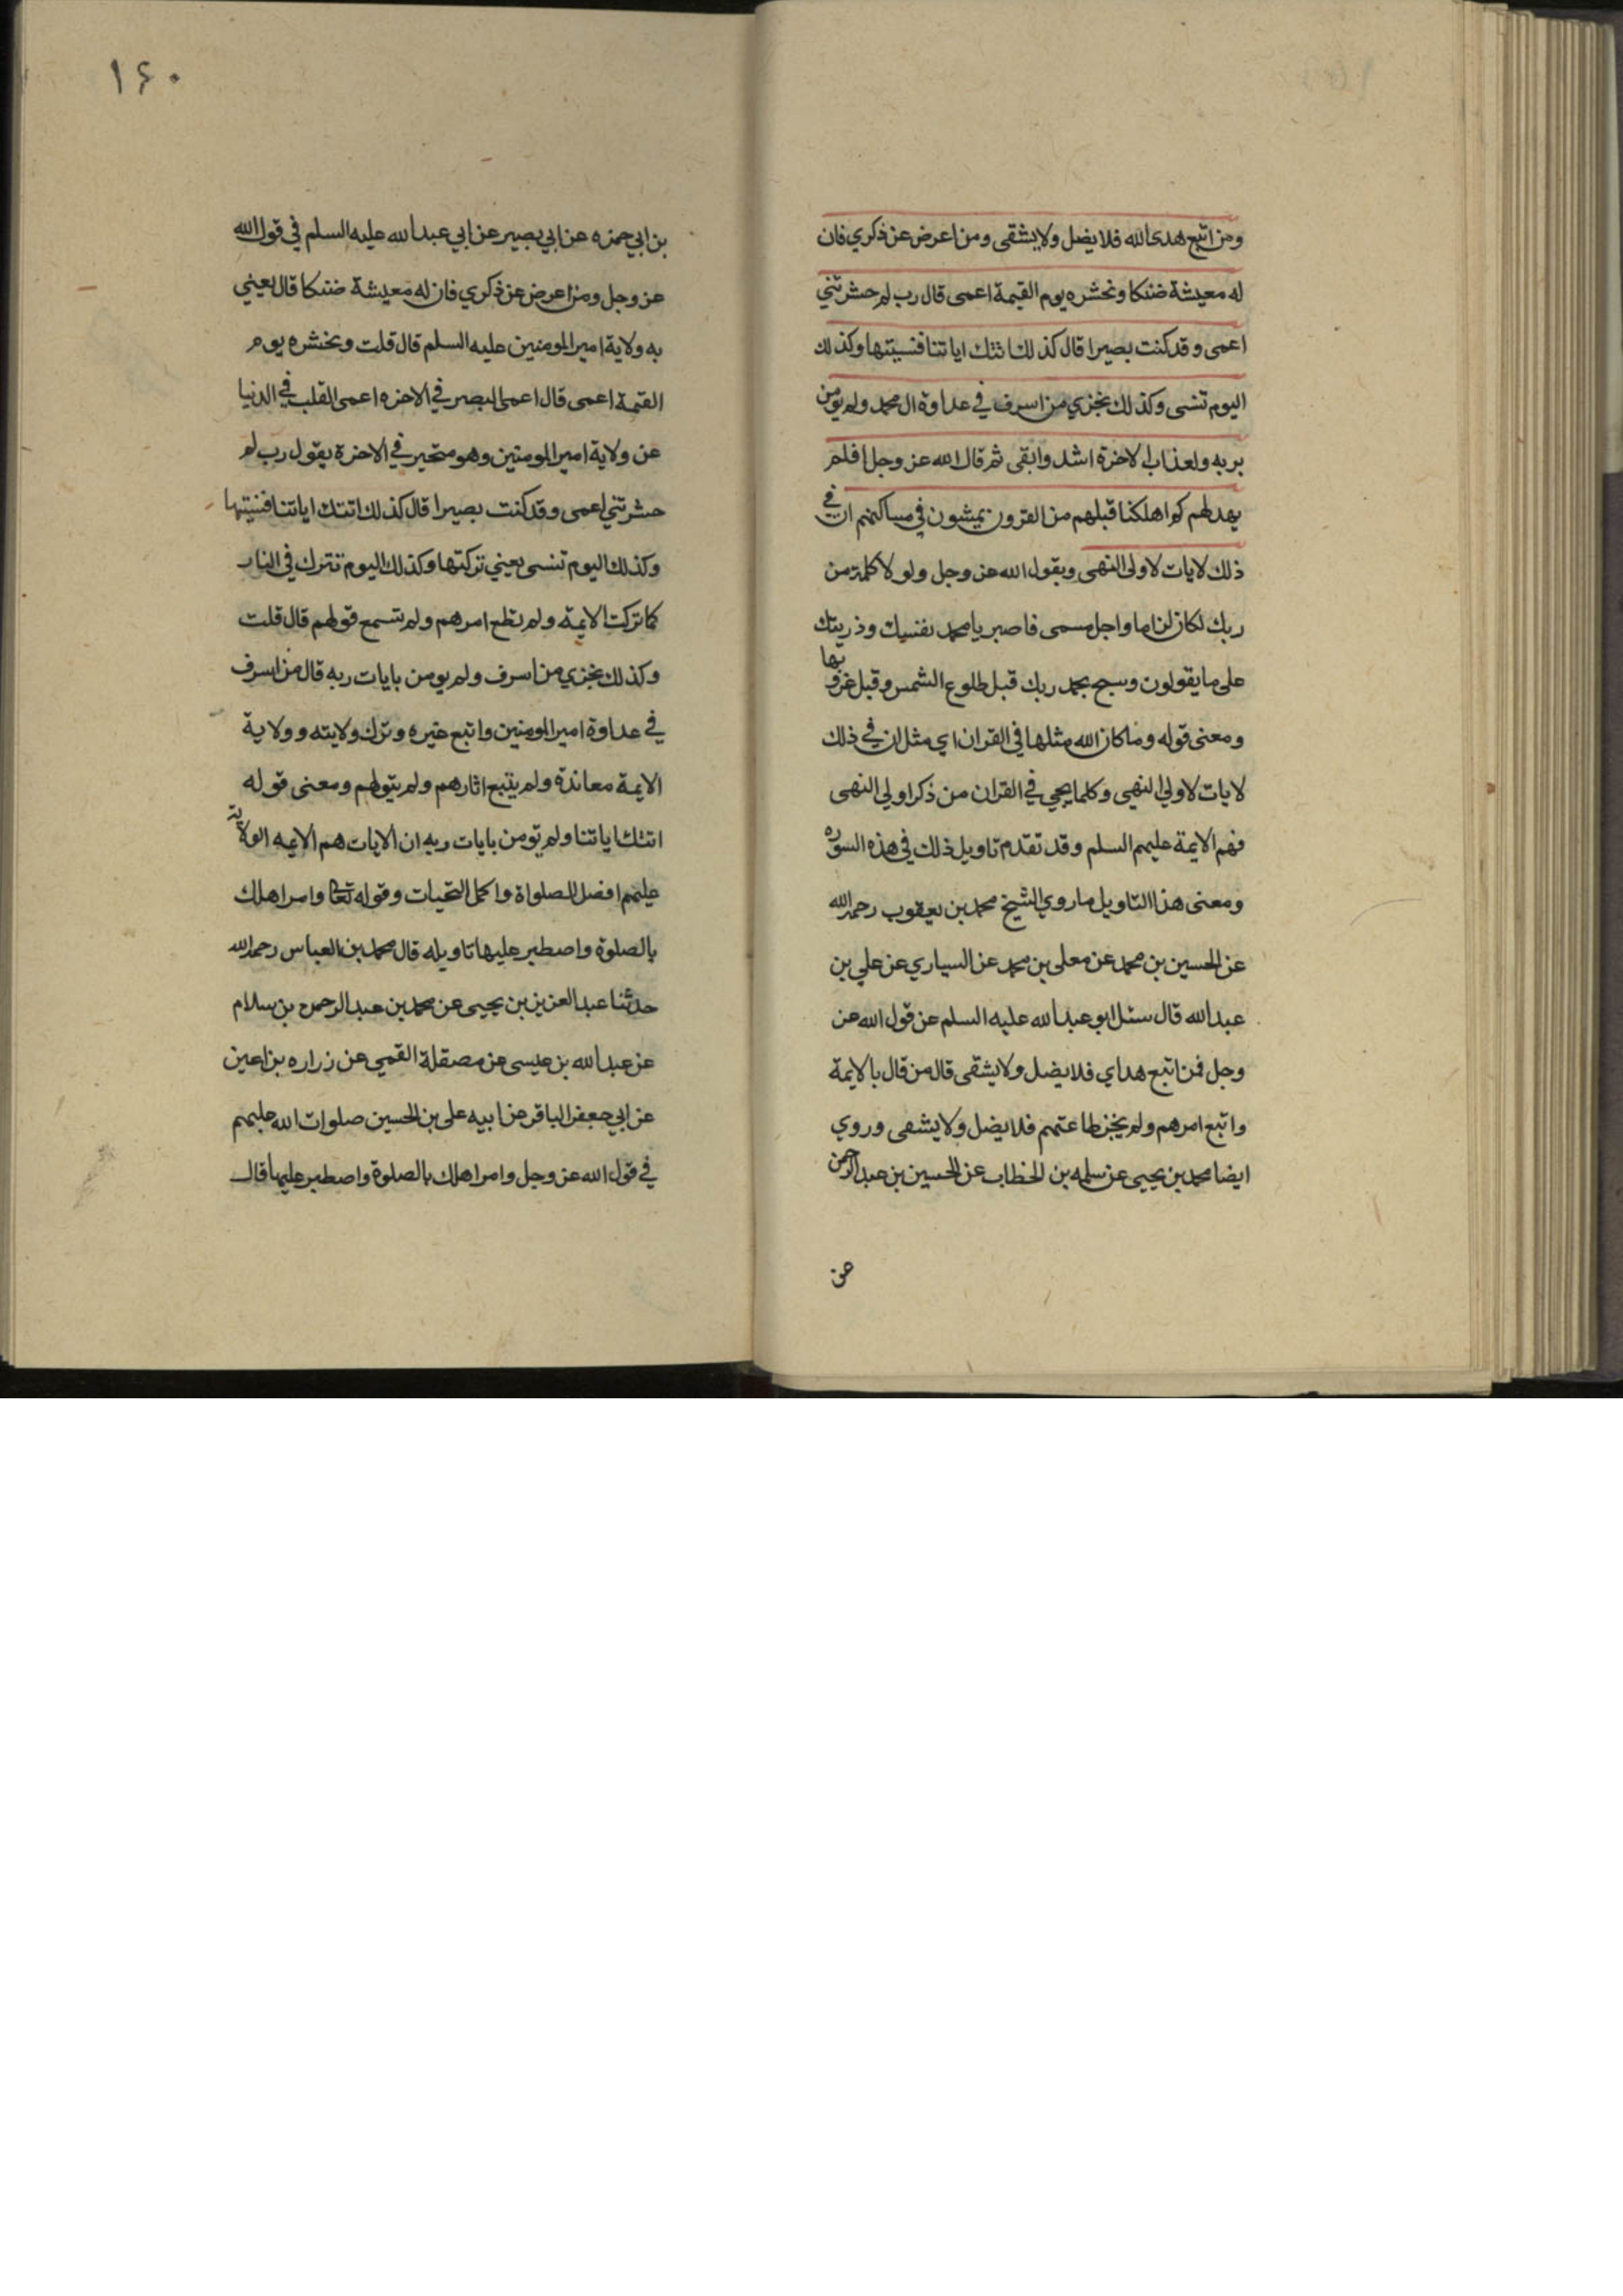 ومن اتبع هدى الله فلا يضل ولا يشقى ومن اعرض عن ذكري فان
له معيشة ضنكا ونحشره يوم القيمة اعمى قال رب لم حشرتني
اعمى وقد كنت بصيرا قال كذلك اتتك اياتنا فنسيتها وكذلك
اليوم تنسى وكذلك نجزي من اسرف في عداوة ال محمد ولم يومن
بربه ولعذاب الاخرة اشد وابقى ثم قال الله عز وجل افلم
يهد لهم كم اهلكنا قبلهم من القرون يمشون في مساكنهم ان في
ذلك لايات لاولى النهى ويقول الله عز وجل ولولا كلمة من
ربك لكان لزاما واجل مسمى فاصبر يا محمد نفسك وذريتك
على ما يقولون وسبح بحمد ربك قبل طلوع الشمس وقبل غروبها
ومعنى قوله وما كان الله مثلها في القران اي مثل ان في ذلك
لايات لاولي النهى وكلما يجي في القران من ذكر اولي النهى
فهم الايمة عليهم السلم وقد تقدم تاويل ذلك في هذه السوره
ومعنى هذا التاويل ما روي الشيخ محمد بن يعقوب رحمه الله
عن الحسين بن محمد عن معلى بن محمد عن السياري عن علي بن
عبد الله قال سئل ابو عبد الله عليه السلم عن قول الله عز
وجل فمن اتبع هداي فلا يضل ولا يشقى قال من قال بالايمة
واتبع امرهم ولم يجز طاعتهم فلا يضل ولا يشقى وروي
ايضا محمد بن يحيى عن سلمه بن الخطاب عن الحسين بن عبد الرحمن
عن
١۶٠
بن ابي حمزه عن ابي بصير عن ابي عبد الله عليه السلم في قول الله
عز وجل ومن اعرض عن ذكري فان له معيشة ضنكا قال يعني
به ولاية امير المومنين عليه السلم قال قلت ونحشره يوم
القيمة اعمى قال اعمى البصر في الاخره اعمى القلب في الدنيا
عن ولاية امير المومنين وهو متحير في الاخرة يقول رب لم
حشرتني اعمى وقد كنت بصيرا قال كذلك اتتك اياتنا فنسيتها
وكذلك اليوم تنسى يعني تركتها وكذلك اليوم تترك في النار
كما تركت الايمة ولم تطع امرهم ولم تسمع قولهم قال قلت
وكذلك نجزي من اسرف ولم يومن بايات ربه قال من اسرف
في عداوة امير المومنين واتبع غيره وترك ولايته وولاية
الايمة معاندة ولم يتبع اثارهم ولم يتولهم ومعنى قوله
اتتك اياتنا ولم تومن بايات ربه ان الايات هم الايمه الولاية
عليهم افضل الصلواة واكمل التحيات وقوله تعالى وامر اهلك
بالصلوة واصطبر عليها تاويله قال محمد بن العباس رحمه الله
حدثنا عبد العزيز بن يحيى عن محمد بن عبد الرحمن بن سلام
عن عبد الله بن عيسى عن مصقلة القمي عن زراره بن اعين
عن ابي جعفر الباقر عن ابيه على بن الحسين صلوات الله عليهم
في قول الله عز وجل وامر اهلك بالصلوة واصطبر عليها قال